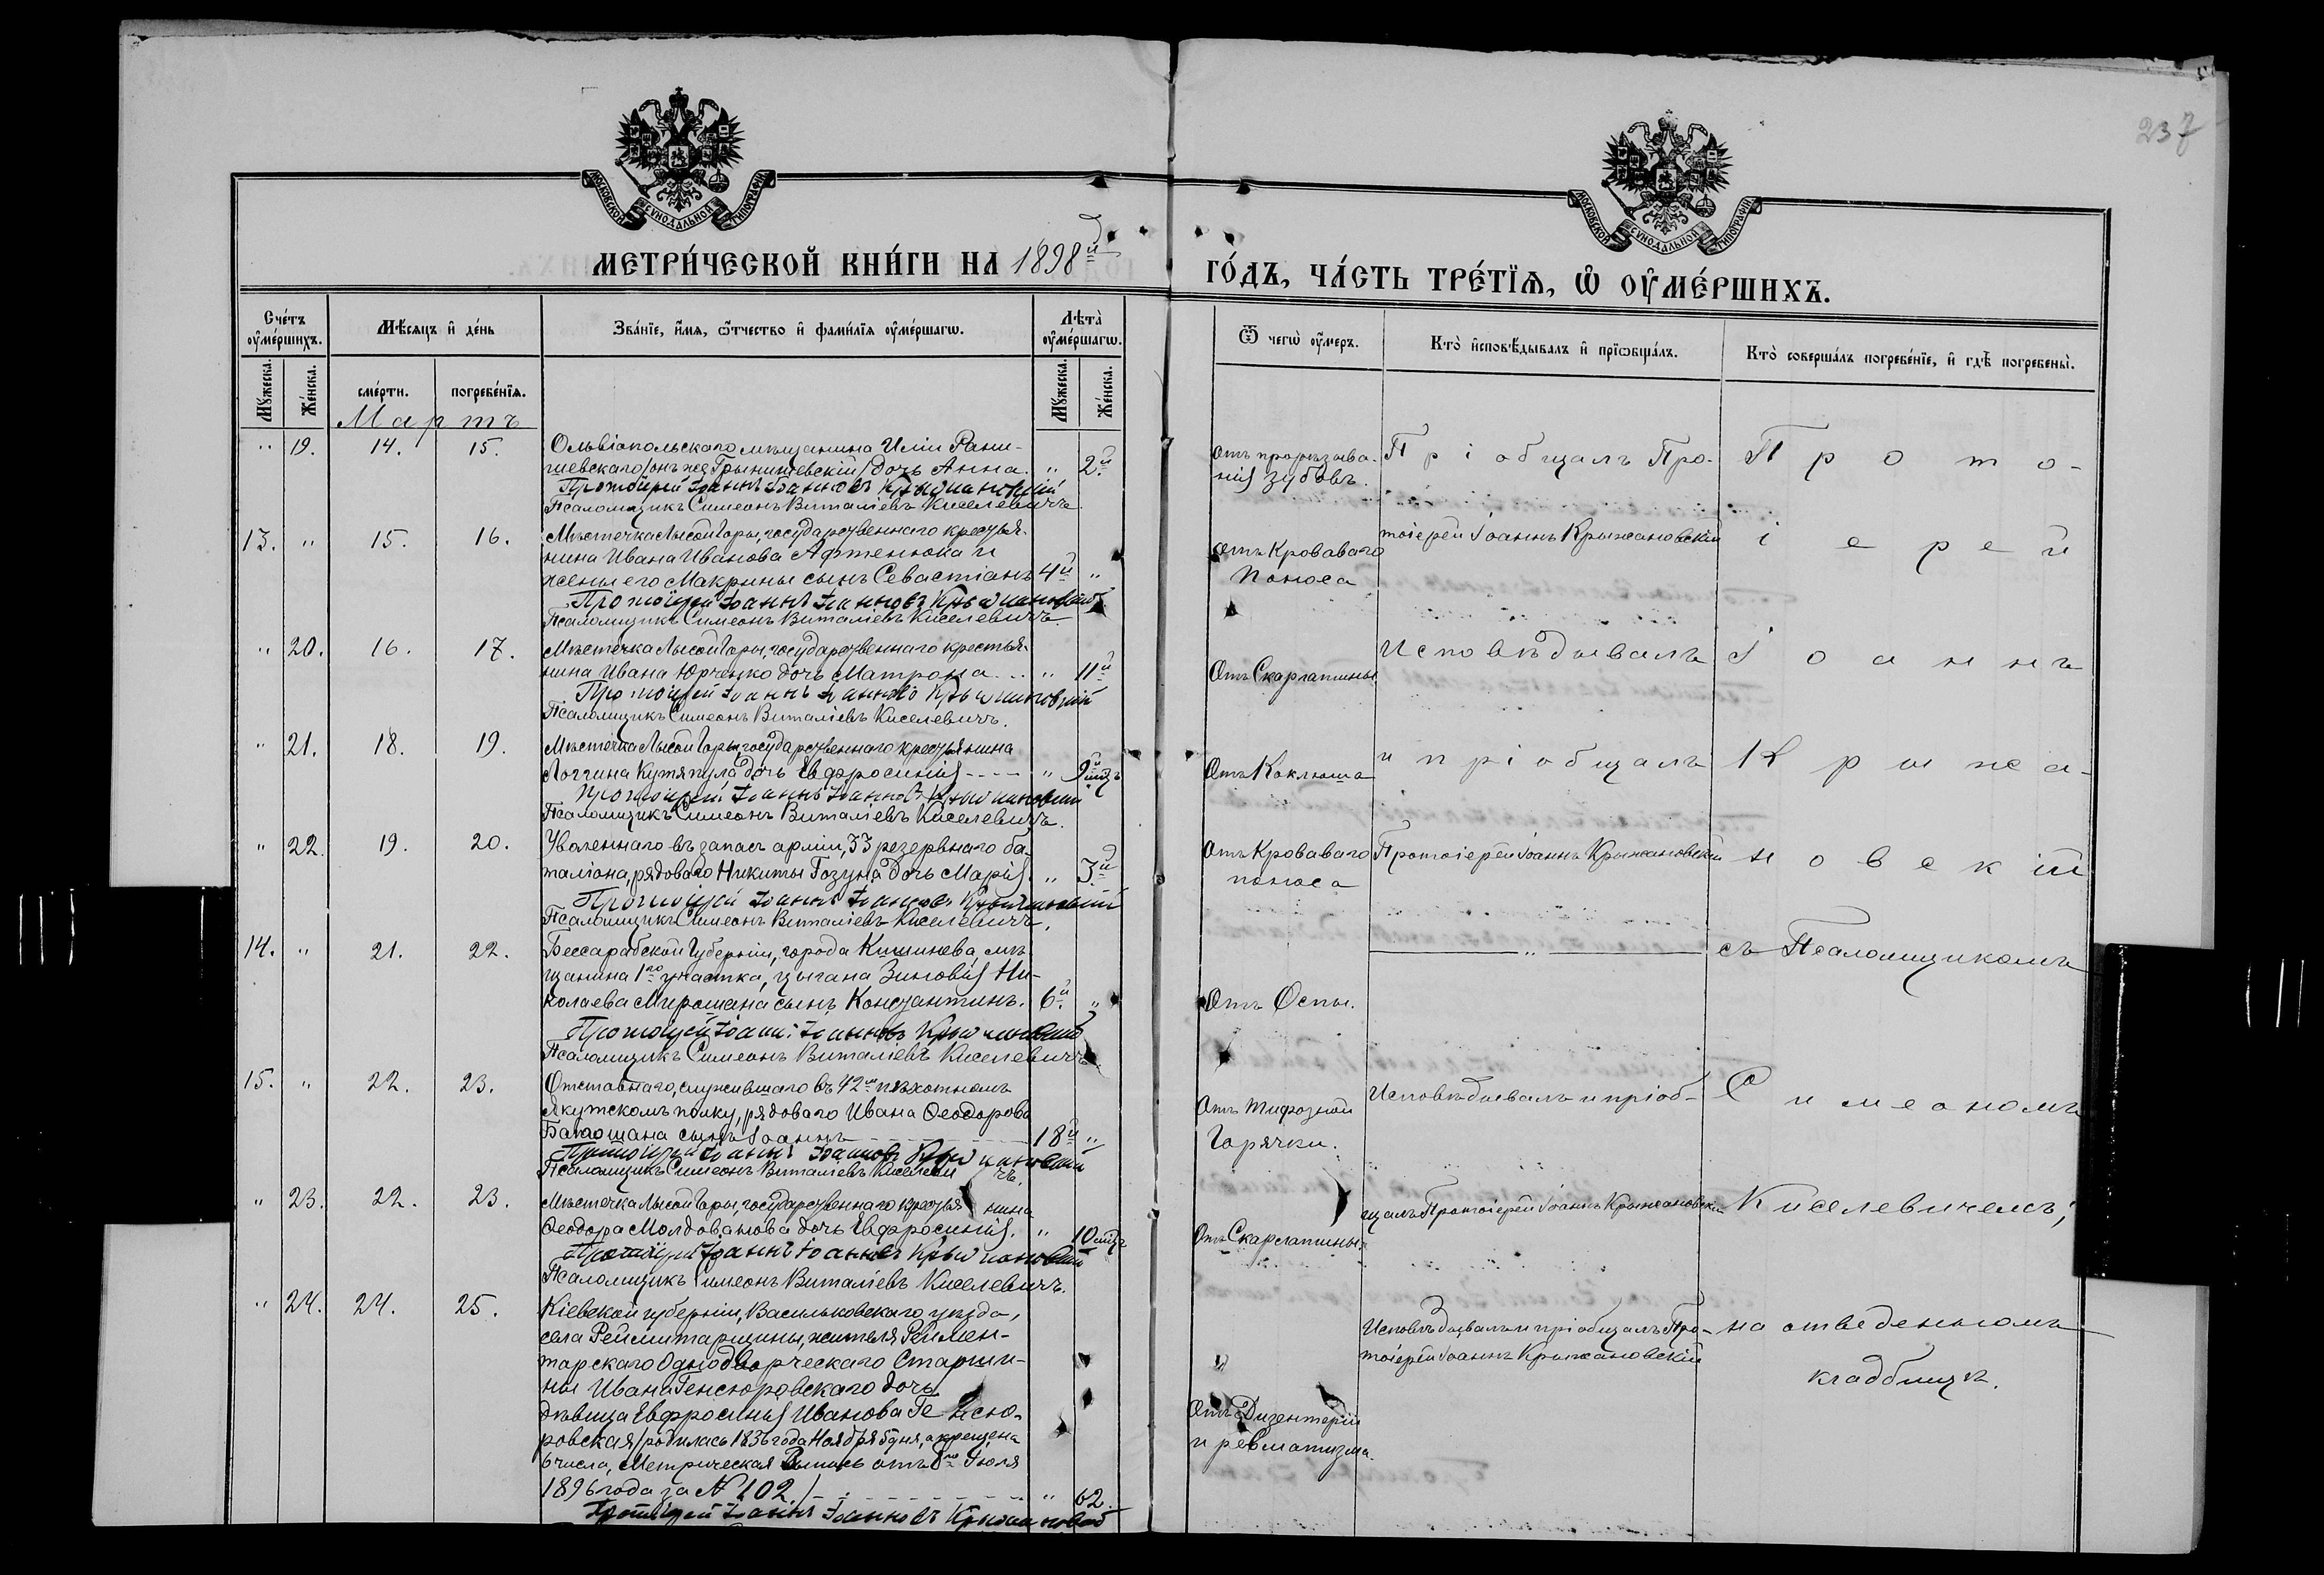 237
МОСКОВСКОЙ СѴНОДАЛЬНОЙ ТИПОГРАФІИ
МОСКОВСКОЙ СѴНОДАЛЬНОЙ ТИПОГРАФІИ
МЕТРИ́ЧЕСКОЙ КНИ́ГИ НА 1898й
ГО́ДЪ, ЧА́СТЬ ТРЕ́ТЇѦ, Ѡ҆ ОУ҆МЕ́РШИХЪ.
Сче́тъ оу҆ме́ршихъ.
Мѣ́сяцъ и҆ де́нь
Зва́нїе, и҆́мя, ѻ҆́тчество и҆ фами́лїя оу҆ме́ршагѡ.
Лѣта̀ оу҆ме́ршагѡ.
Ѿ чегѡ̀ оу҆́меръ.
Кто̀ и҆сповѣ́дывалъ и҆ прїѡбща́лъ.
Кто̀ соверша́лъ погребе́нїе, и҆ гдѣ̀ погребены̀.
Мꙋ́жеска. Же́нска. сме́рти. погребе́нїя. Мꙋ́жеска. Же́нска.
Мартъ
" 19. 14. 15. Ольвіопольскаго мѣщанина Иліи Рани-
гиевскаго /онъ же Грынишевскій/ дочь Анна. " 2й
Протоіерей Іоаннъ Іоанновъ Крыжановскій
Псаломщикъ Симеонъ Виталіевъ Киселевичъ
Отъ прорѣзыва-
нія зубовъ.
Пріобщалъ Про-
Прото-
13. " 15. 16. Мѣстечка Лысой Горы, государственнаго крестья-
нина Ивана Иванова Афтенюка и
жены его Макрины сынъ Севастіанъ 4й "
Протоіерей Іоаннъ Іоанновъ Крыжановскій
Псаломщикъ Симеонъ Виталіевъ Киселевичъ.
отъ Кроваваго
Поноса
тоіерей Іоаннъ Крыжановскій
іерей
" 20. 16. 17. Мѣстечка Лысой Горы, государственнаго крестья-
нина Ивана Юрченко дочь Матрона " 11й
Протоіерей Іоаннъ Іоанновъ Крыжановскій
Псаломщикъ Симеонъ Виталіевъ Киселевичъ.
Отъ Скарлатины
Исповѣдывалъ
Іоаннъ
" 21. 18. 19. Мѣстечка Лысой Горы, государственнаго крестьянина
Логгина Кутяпула дочь Евфросинія " 9й мѣс.
Протоіерей Іоаннъ Іоанновъ Крыжановскій
Псаломщикъ Симеонъ Виталіевъ Киселевичъ.
Отъ Коклюша
и пріобщалъ
Крыжа-
" 22. 19. 20. Уволеннаго въ запасъ арміи, 33 резервнаго ба-
таліона, рядоваго Никиты Гозуна дочь Марія. " 3й
Протоіерей Іоаннъ Іоанновъ Крыжановскій
Псаломщикъ Симеонъ Виталіевъ Киселевичъ.
Отъ Кроваваго
поноса
Протоіерей Іоаннъ Крыжановскій
новскій
14. " 21. 22. Бессарабской Губерніи, города Кишинева, мѣ-
щанина 1го участка, цыгана Зиновія Ни-
колаева Мирошана сынъ Константинъ. 6й "
Протоіерей Іоаннъ Іоанновъ Крыжановскій
Псаломщикъ Симеонъ Виталіевъ Киселевичъ.
Отъ Оспы.
"
съ Псаломщикомъ
15. " 22. 23. Отставнаго, служившаго въ 42м пѣхотномъ
Якутскомъ полку, рядоваго Ивана Ѳеодорова
сынъ Іоаннъ 18й "
Протоіерей Іоаннъ Іоанновъ Крыжановскій
Псаломщикъ Симеонъ Виталіевъ Киселевичъ.
Отъ Тифозной
Горячки.
Исповѣдывалъ и пріоб-
Симеономъ
" 23. 22. 23. Мѣстечка Лысой Горы, государственнаго крестьянина
Ѳеодора Молдованова дочь Евфросинія. " 10 мѣс.
Протоіерей Іоаннъ Іоанновъ Крыжановскій
Псаломщикъ Симеонъ Виталіевъ Киселевичъ.
Отъ Скарлатины.
щалъ Протоіерей Іоаннъ Крыжановскій
Киселевичемъ;
" 24. 24. 25. Кіевской губерніи, Васильковскаго уѣзда,
села Рейментарщины, жителя Реймен-
тарскаго Однодворческаго Старши-
ны Ивана Генсюровскаго дочь
дѣвица Евфросинія Иванова Генсю-
ровская /родилась 1836 года Ноября 5 дня, а крещена
6 числа, Метрическая Выпись отъ 8го Іюля
1896 года за № 102./ " 62.
Протоіерей Іоаннъ Іоанновъ Крыжановскій
Отъ Дизентеріи
и ревматизма.
Исповѣдывалъ и пріобщалъ Про-
тоіерей Іоаннъ Крыжановскій
на отведенномъ
кладбищѣ.